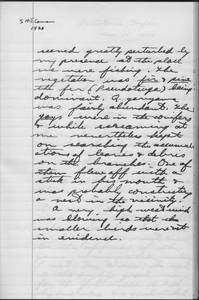 S McCowan
1938
seemed greatly perturbed by
my presence at the place
we were fishing. The
vegetation was fir & pine
the fir (Pseudotsuga) being
dominant. A. germana
was fairly abundant. The
jays were in the conifers
& while screaming at
me nevertheless kept
on searching the accumul-
ations of leaves & debris
on the branches. One of
them flew off with a
stick in his mouth &
was probably constructing
a nest in the vicinity.
A very high west wind
was blowing so that the
smaller birds were not
in evidence.